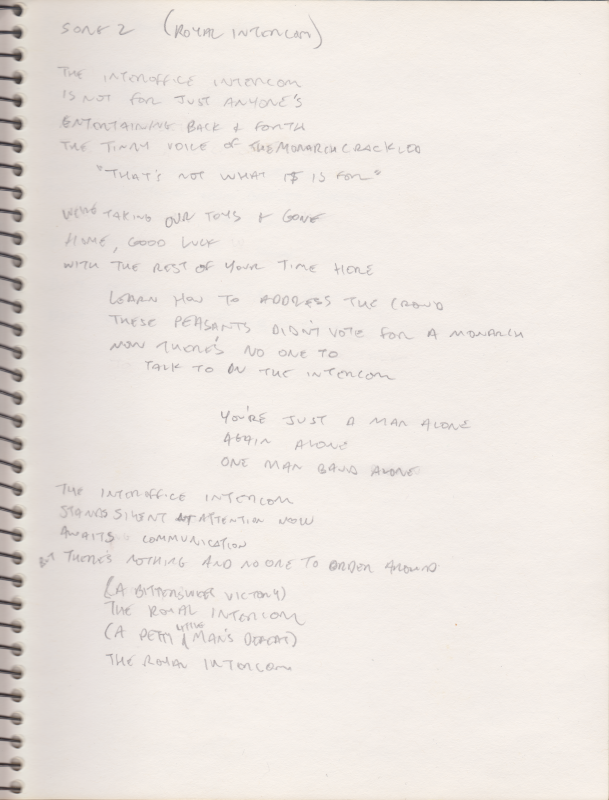 SONG 2 (ROYAL INTERCOM)
THE INTEROFFICE INTERCOM
IS NOT FOR JUST ANYONE'S
ENTERTAINING BACK & FORTH
THE TINNY VOICE OF THE MONARCH CRACKLED
"THAT'S NOT WHAT IT IS FOR"
WE'RE TAKING OUR TOYS & GONE
HOME, GOOD LUCK
WITH THE REST OF YOUR TIME HERE
LEARN HOW TO ADDRESS THE CROWD
THESE PEASANTS DIDN'T VOTE FOR A MONARCH
NOW THERE'S NO ONE TO
TALK TO ON THE INTERCOM
YOU'RE JUST A MAN ALONE
AGAIN ALONE
ONE MAN BAND ALONE
THE INTEROFFICE INTERCOM
STANDS SILENT AT ATTENTION NOW
AWAITS COMMUNICATION
BUT THERE'S NOTHING AND NO ONE TO ORDER AROUND
(A BITTERSWEET VICTORY)
THE ROYAL INTERCOM
(A PETTY LITTLE MAN'S DEFEAT)
THE ROYAL INTERCOM